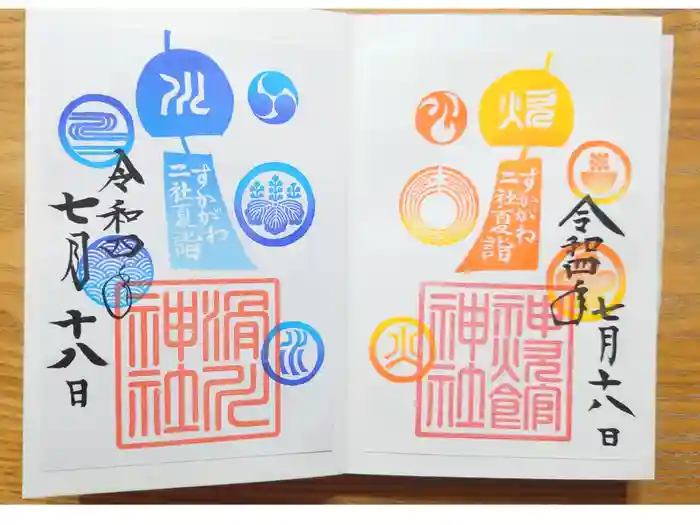 川
すかがわ
二社夏詣
令和四年
七月十八日
滑川
神社
炎
すかがわ
二社夏詣
令和四年
七月十八日
神炊館
神社
火